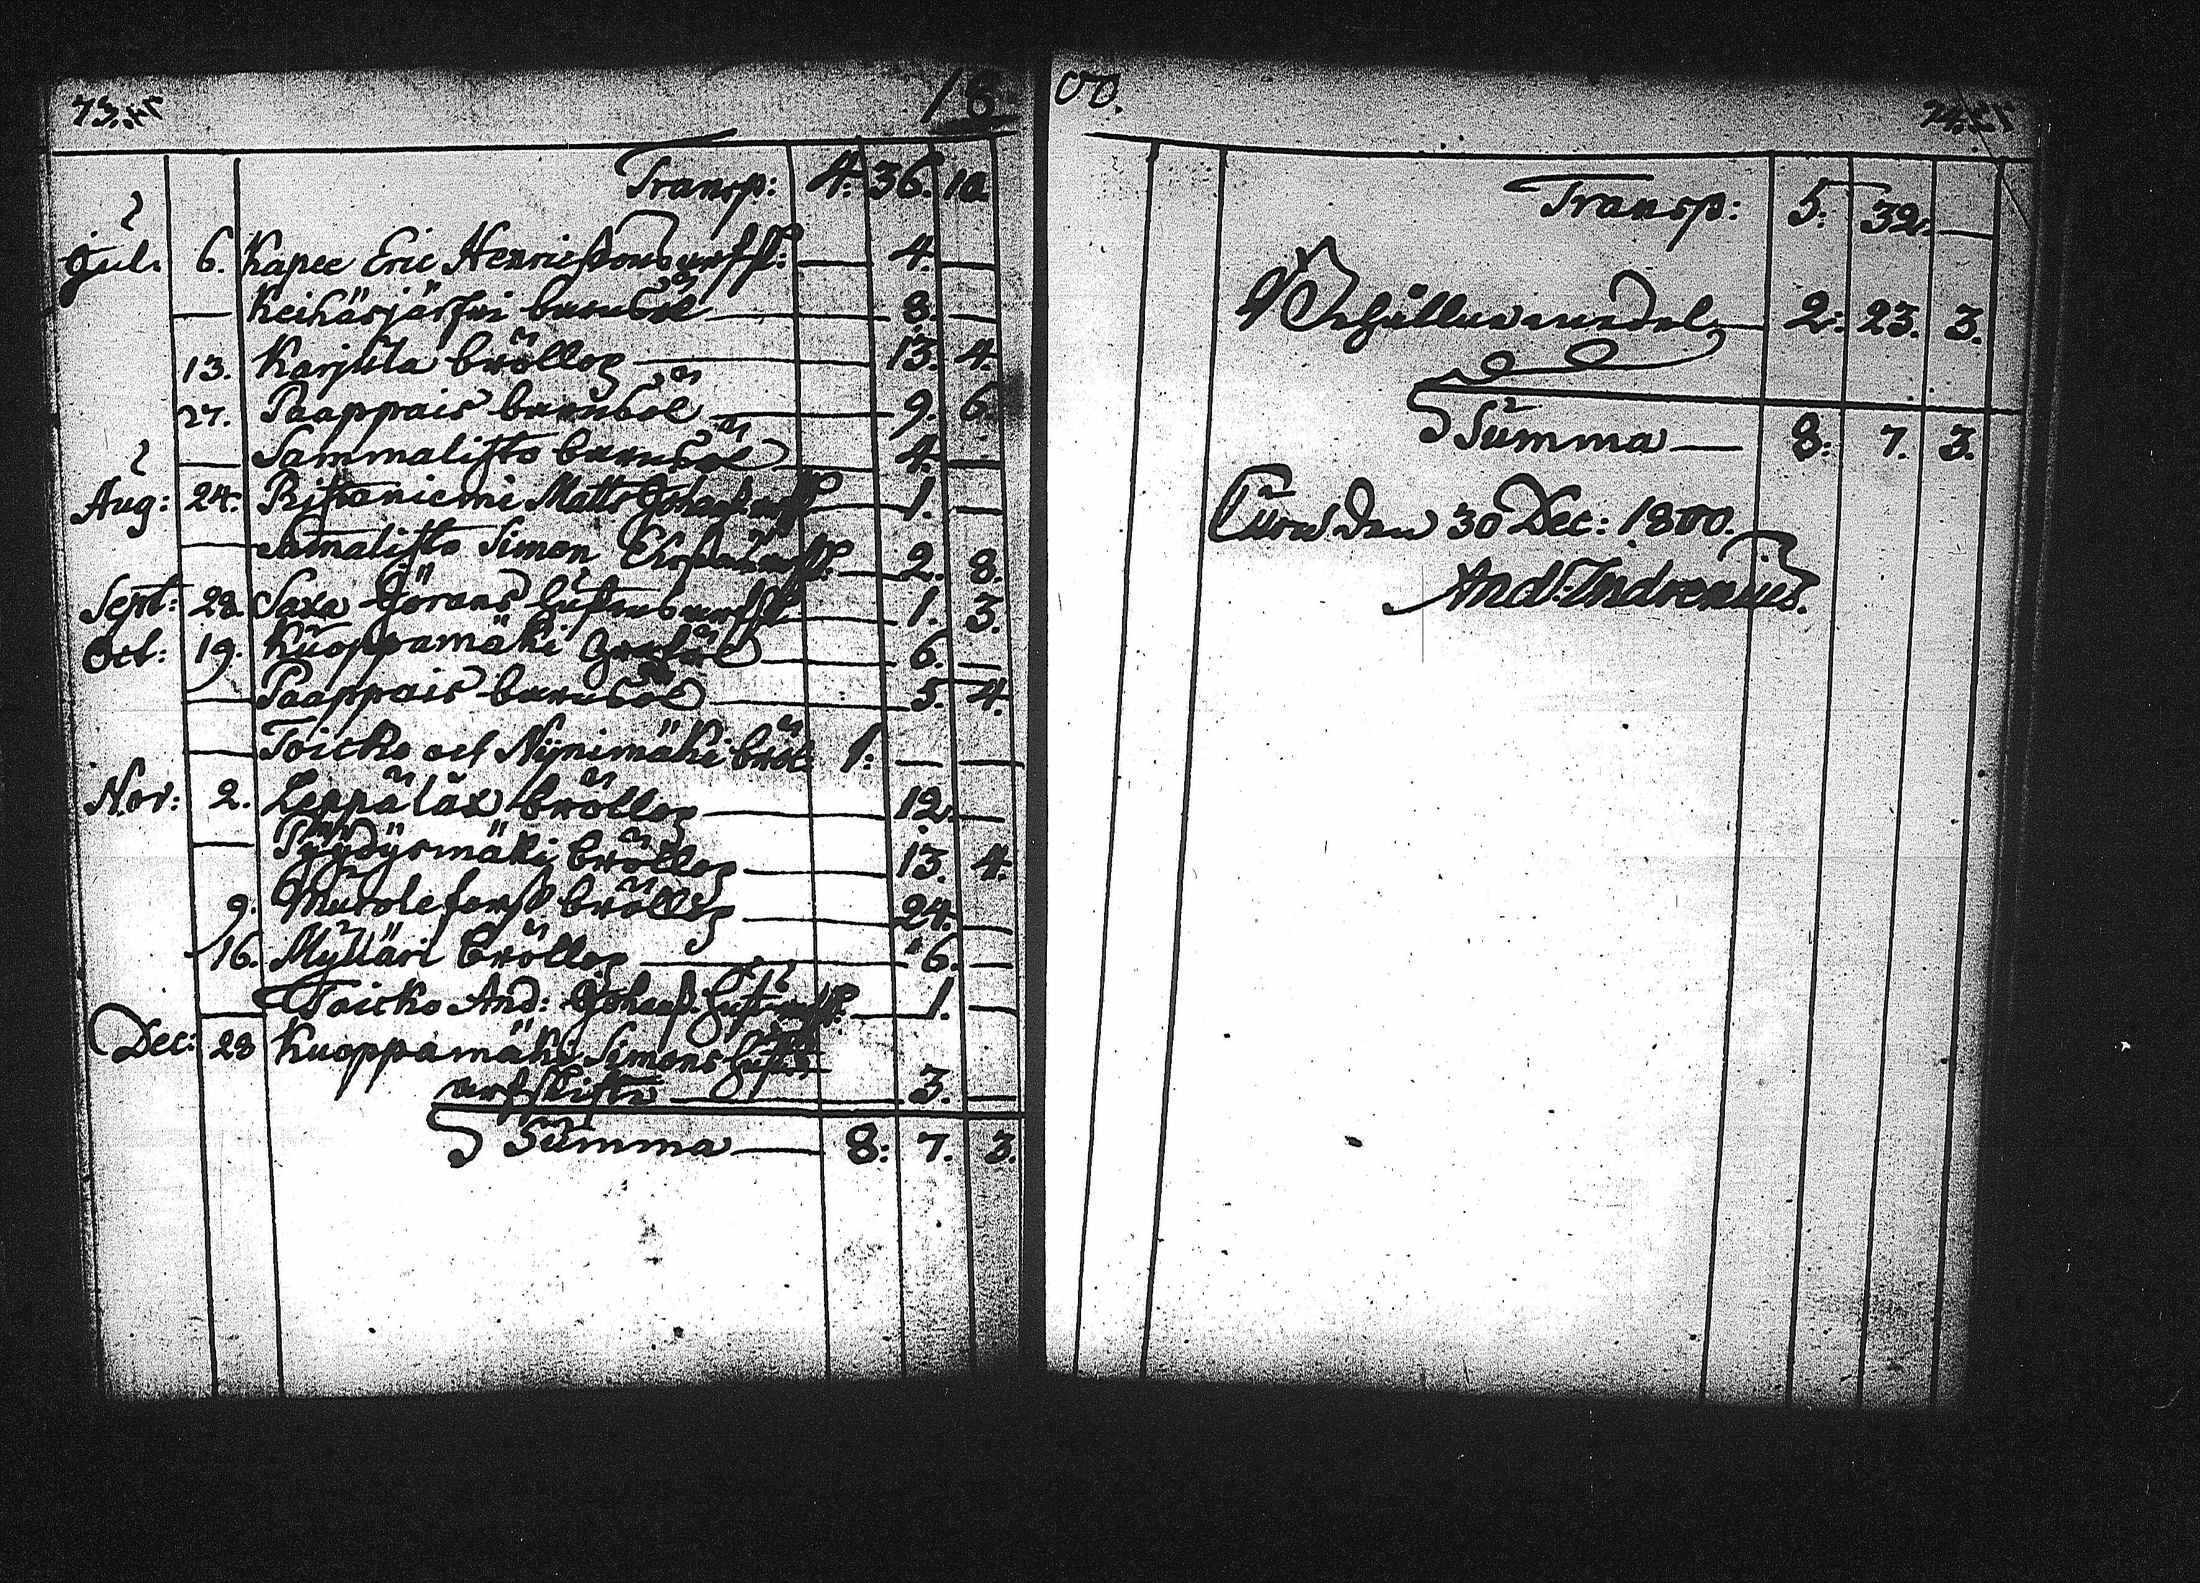 73.
18
Transp: 4: 36. 10.
Jul: 6. Kapee Eric Henricssons arfsk: 4.
Keihäsjärfvi barnsöl 8.
13. Karjula bröllop 13. 4.
27. Paappais barnsöl 9. 6
Sammalisto barnsöl 4.
Aug: 24. Ristaniemi Matts Johanss arfsk 1.
Samalisto Simon arfsk: 2. 8.
Sept: 28 Saxa Görans hustrus arfsk 1. 3.
Oct: 19. Kuoppamäki graföl 6.
Paappais barnsöl 5. 4.
Toicko och Nynimäki bröl 1:
Nov: 2. Leppälax bröllop 12.
Pyydysmäki bröllop 13. 4.
9. Murolefors bröllop 24.
16. Mylläri bröllop 6.
Toicko And: Johanss. hust arfsk: 1.
Dec: 28 Kuoppamäki Simons hustrus
arfskifte 3.
Summa 8: 7. 3.
00.
Transp: 5: 32.
Behållne medel 2: 23. 3.
Summa 8: 7. 3.
den 30 Dec: 1800.
And: Indrenius.